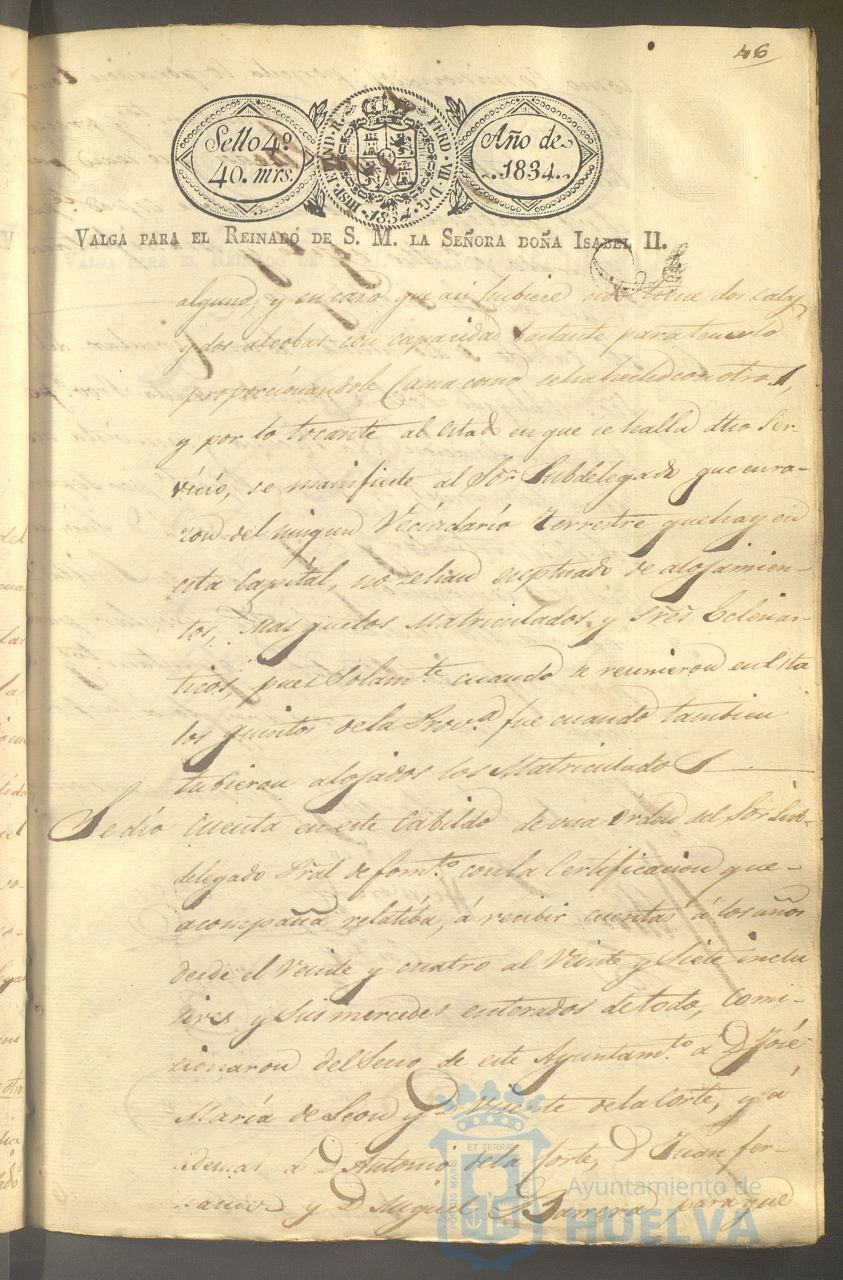 46
Sello 4º
40. mrs.
HISP. ET IND. R. FERD. VII. D. G. 1834.
Año de
1834.
VALGA PARA EL REINADO DE S. M. LA SEÑORA DOÑA ISABEL II.
alguno, y en caso que asi hubiere no tiene dos salas
y dos alcobas con capacidad bastante para tenerlo
proporcionandole Cama como se ha hecho con otros,
y por lo tocante al estado en que se halla dho Ser-
vicio, se manifieste al Sōr Subdelegado que en ra-
zon del ningun Vecindario terrestre que hay en
esta Capital, no se han exceptuado de alojamien-
tos, mas que los Matriculados y Sres Eclesias-
ticos, pues Solam.te cuando se reunieron en Esta
los quintos de la Prov.a fue cuando tambien
tubieron alojados los Matriculados
Se dio cuenta en este Cabildo de una orden del Sōr Sub-
delegado Pral de fom.to con la Certificacion que
acompaña relatiba, á recibir cuentas á los años
desde el Veinte y cuatro al Veinte y Siete inclu
sives y Sus mercedes enterados de todo, Comi-
cionaron del Seno de este Ayuntam.to á D José
María de Leon y D Vicente de la Corte, y á
demas á D Antonio de la Corte, D Juan fer-
nandez y D Miguel Barrera, para que
POTUS MARIS ET TERRAE
Ayuntamiento de
HUELVA